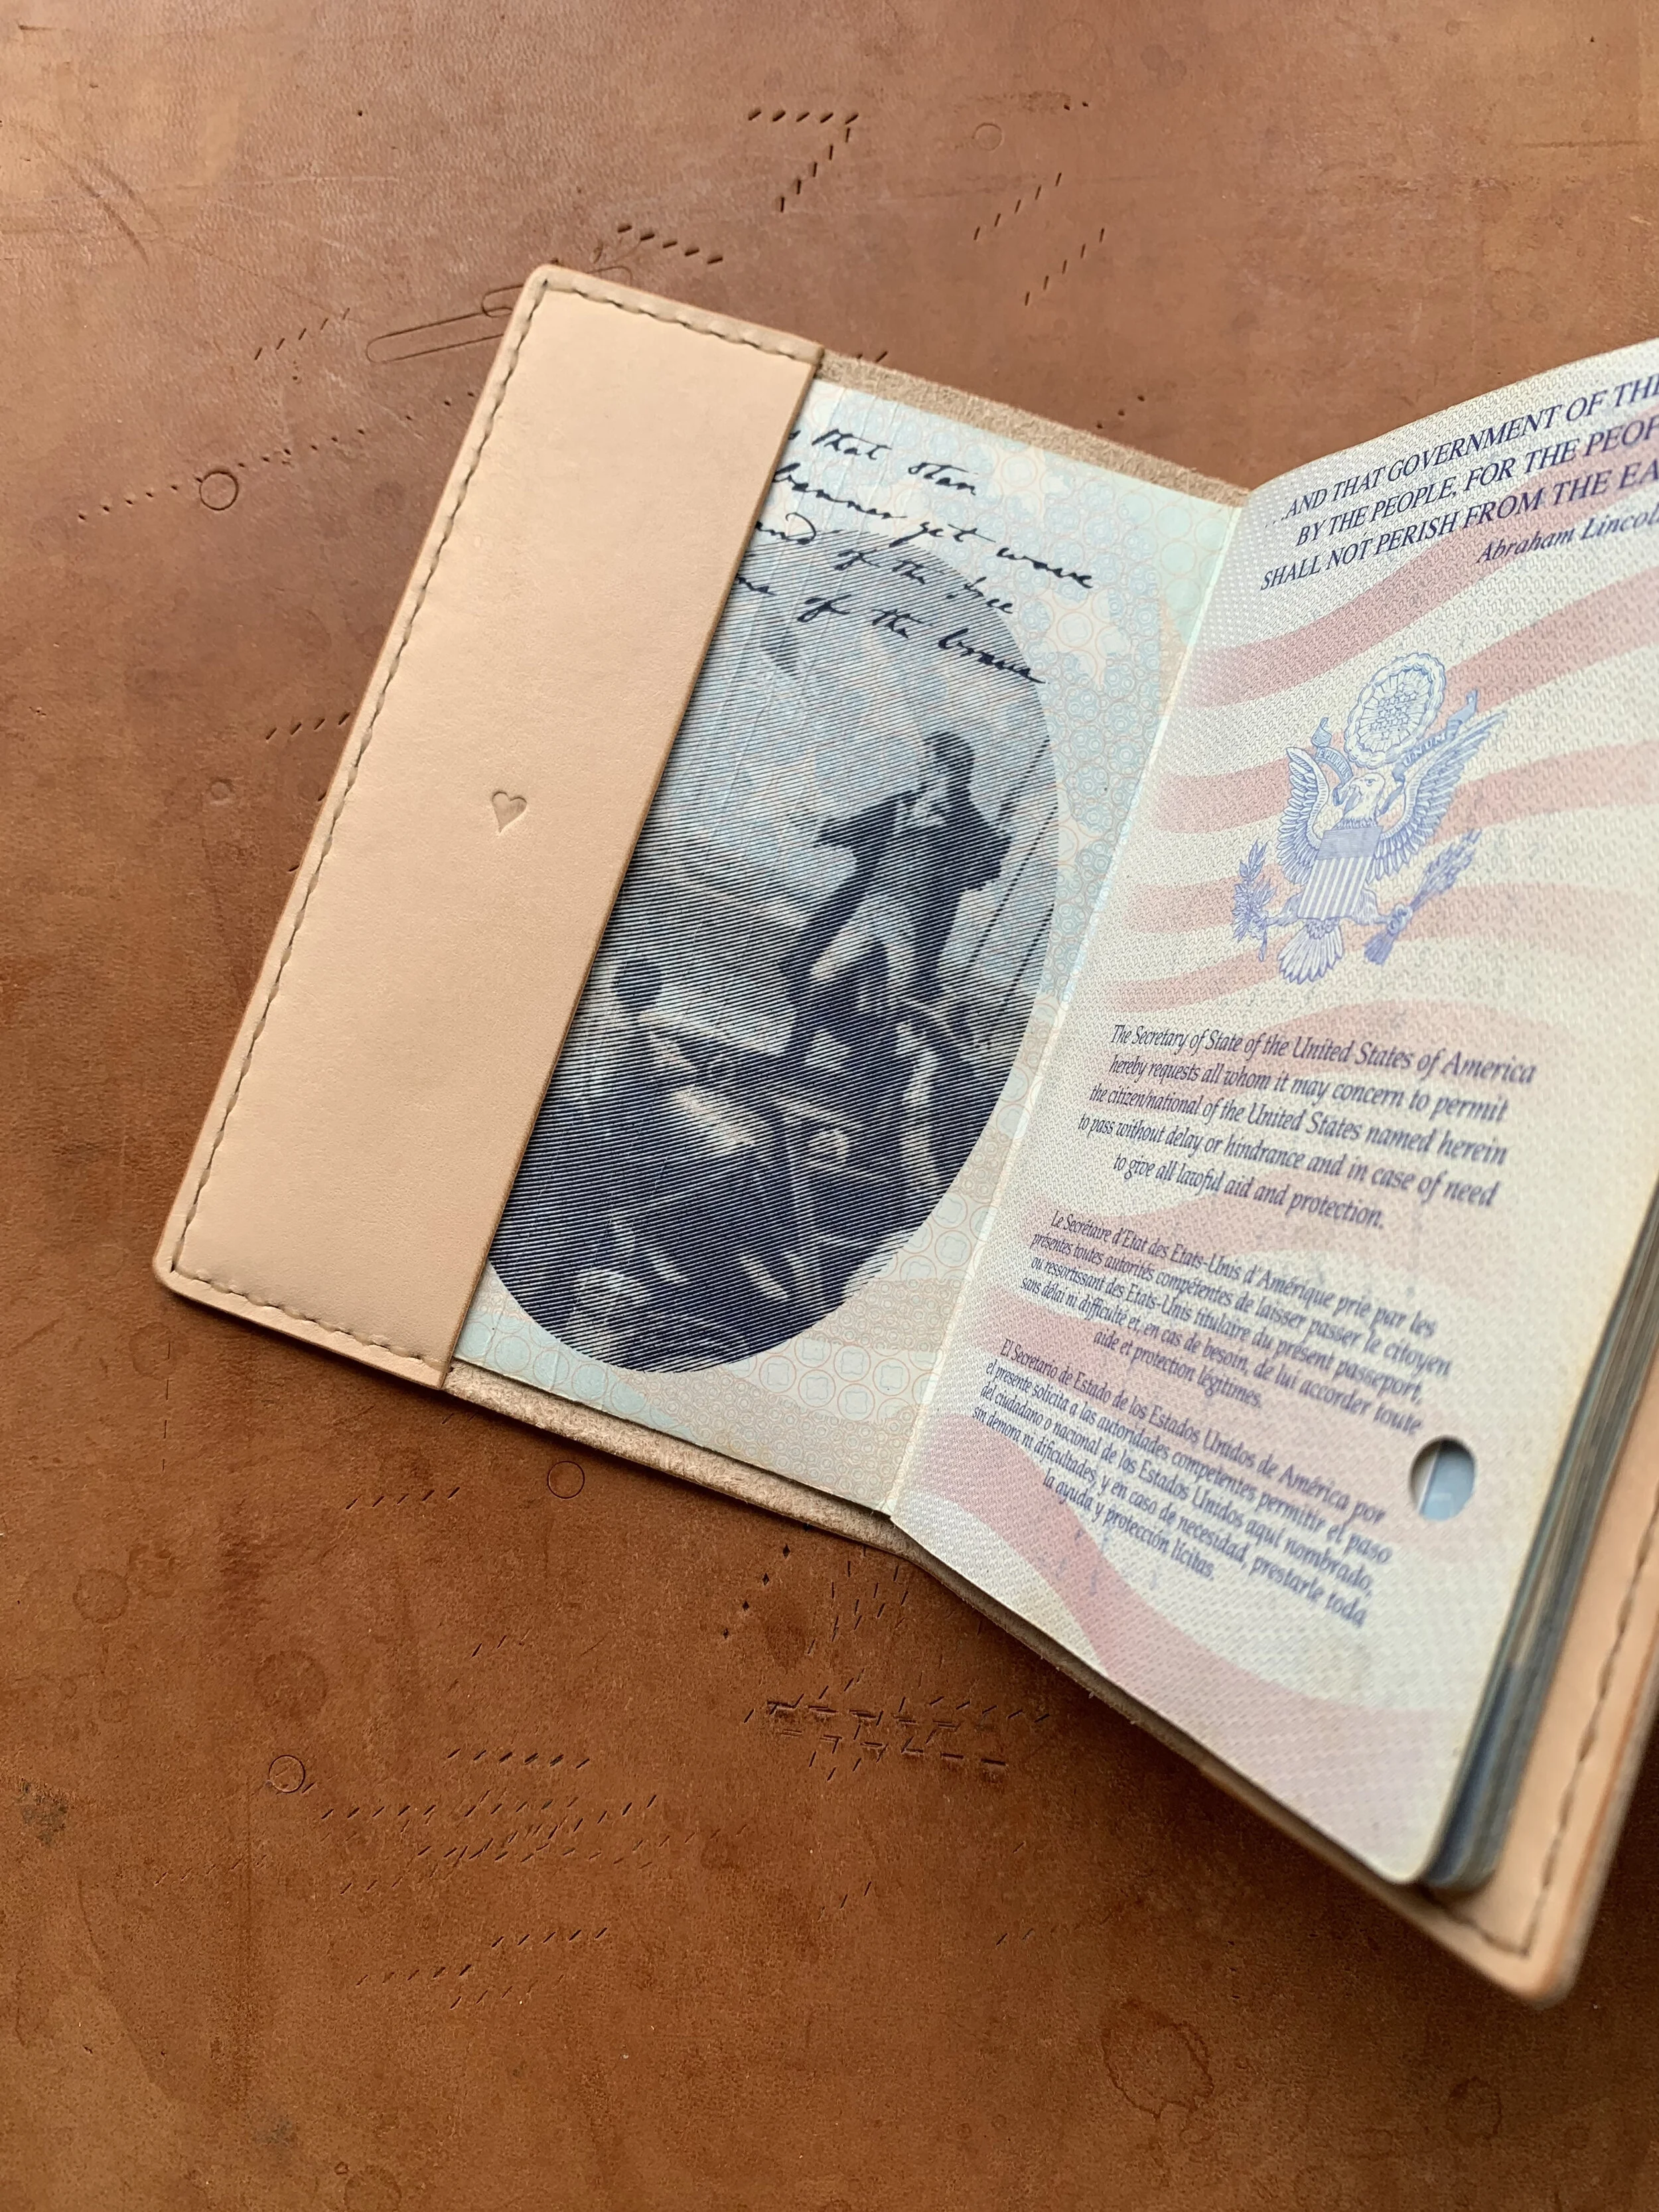 that star
banner yet wave
of the free
of the brave
...AND THAT GOVERNMENT OF THE
BY THE PEOPLE, FOR THE
SHALL NOT PERISH FROM THE
Abraham
The Secretary of State of the United States of America
hereby requests all whom it may concern to permit
the citizen/national of the United States named herein
to pass without delay or hindrance and in case of need
to give all lawful aid and protection.
Le Secrétaire d'Etat des Etats-Unis d'Amérique prie par les
présentes toutes autorités compétentes de laisser passer le citoyen
ou ressortissant des Etats-Unis titulaire du présent passeport,
sans délai ni difficulté et, en cas de besoin, de lui accorder toute
aide et protection légitimes.
El Secretario de Estado de los Estados Unidos de América por
el presente solicita a las autoridades competentes permitir el paso
del ciudadano o nacional de los Estados Unidos aquí nombrado,
sin demora ni dificultades, y en caso de necesidad, prestarle toda
la ayuda y protección lícitas.